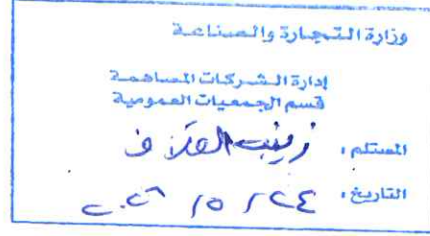 وزارة التجارة والصناعة
إدارة الشركات المساهمة
قسم الجمعيات العمومية
المستلم : زينب العلاف
التاريخ : ٢٤ / ٥ / ٢٠٢٦